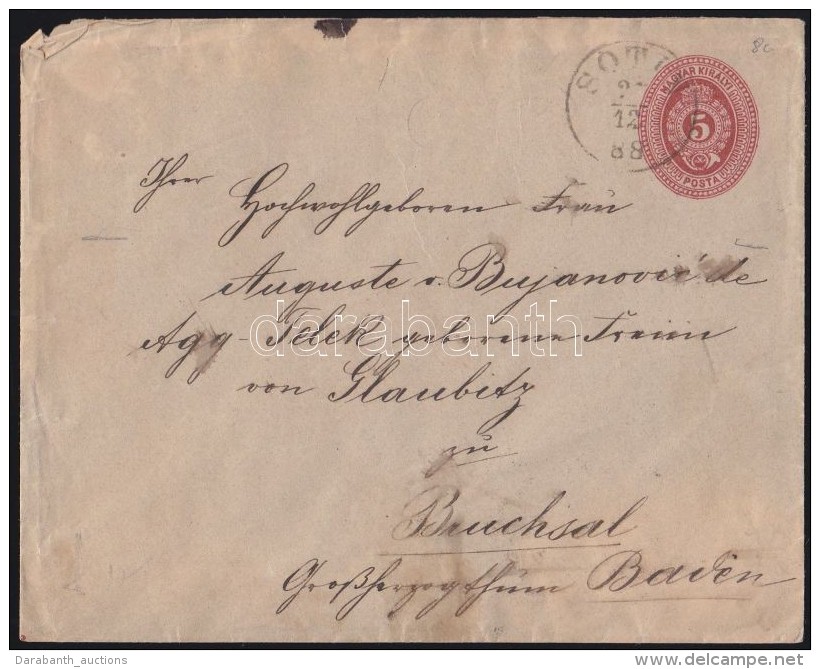 80
SOTI
2
12
88
MAGYAR KIRÁLYI
5
POSTA
Ihrer
Hochwohlgeboren Frau
Auguste v. Bujanović de
Agg-Telek geborene Freiin
von Glaubitz
zu
Bruchsal
Großherzogthum Baden
darabanth
Darabanth_auctions
www.delcampe.net